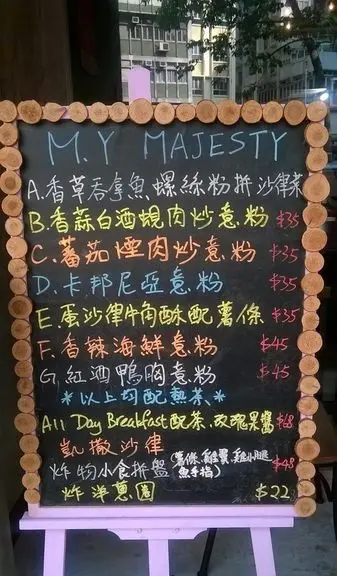 M.Y MAJESTY
A.香草吞拿魚螺絲粉拼沙律菜
B.香蒜白酒蜆肉炒意粉 $35
C.蕃茄煙肉炒意粉 $35
D.卡邦尼亞意粉 $35
E.蛋沙律牛角酥配薯條 $35
F.香辣海鮮意粉 $45
G.紅酒鴨胸意粉 $45
*以上均配熱茶*
All Day Breakfast配茶.玫瑰果醬 $68
凱撒沙律
炸物小食拼盤(薯條.雞翼.雞小腿 魚手指) $48
炸洋蔥圈 $22